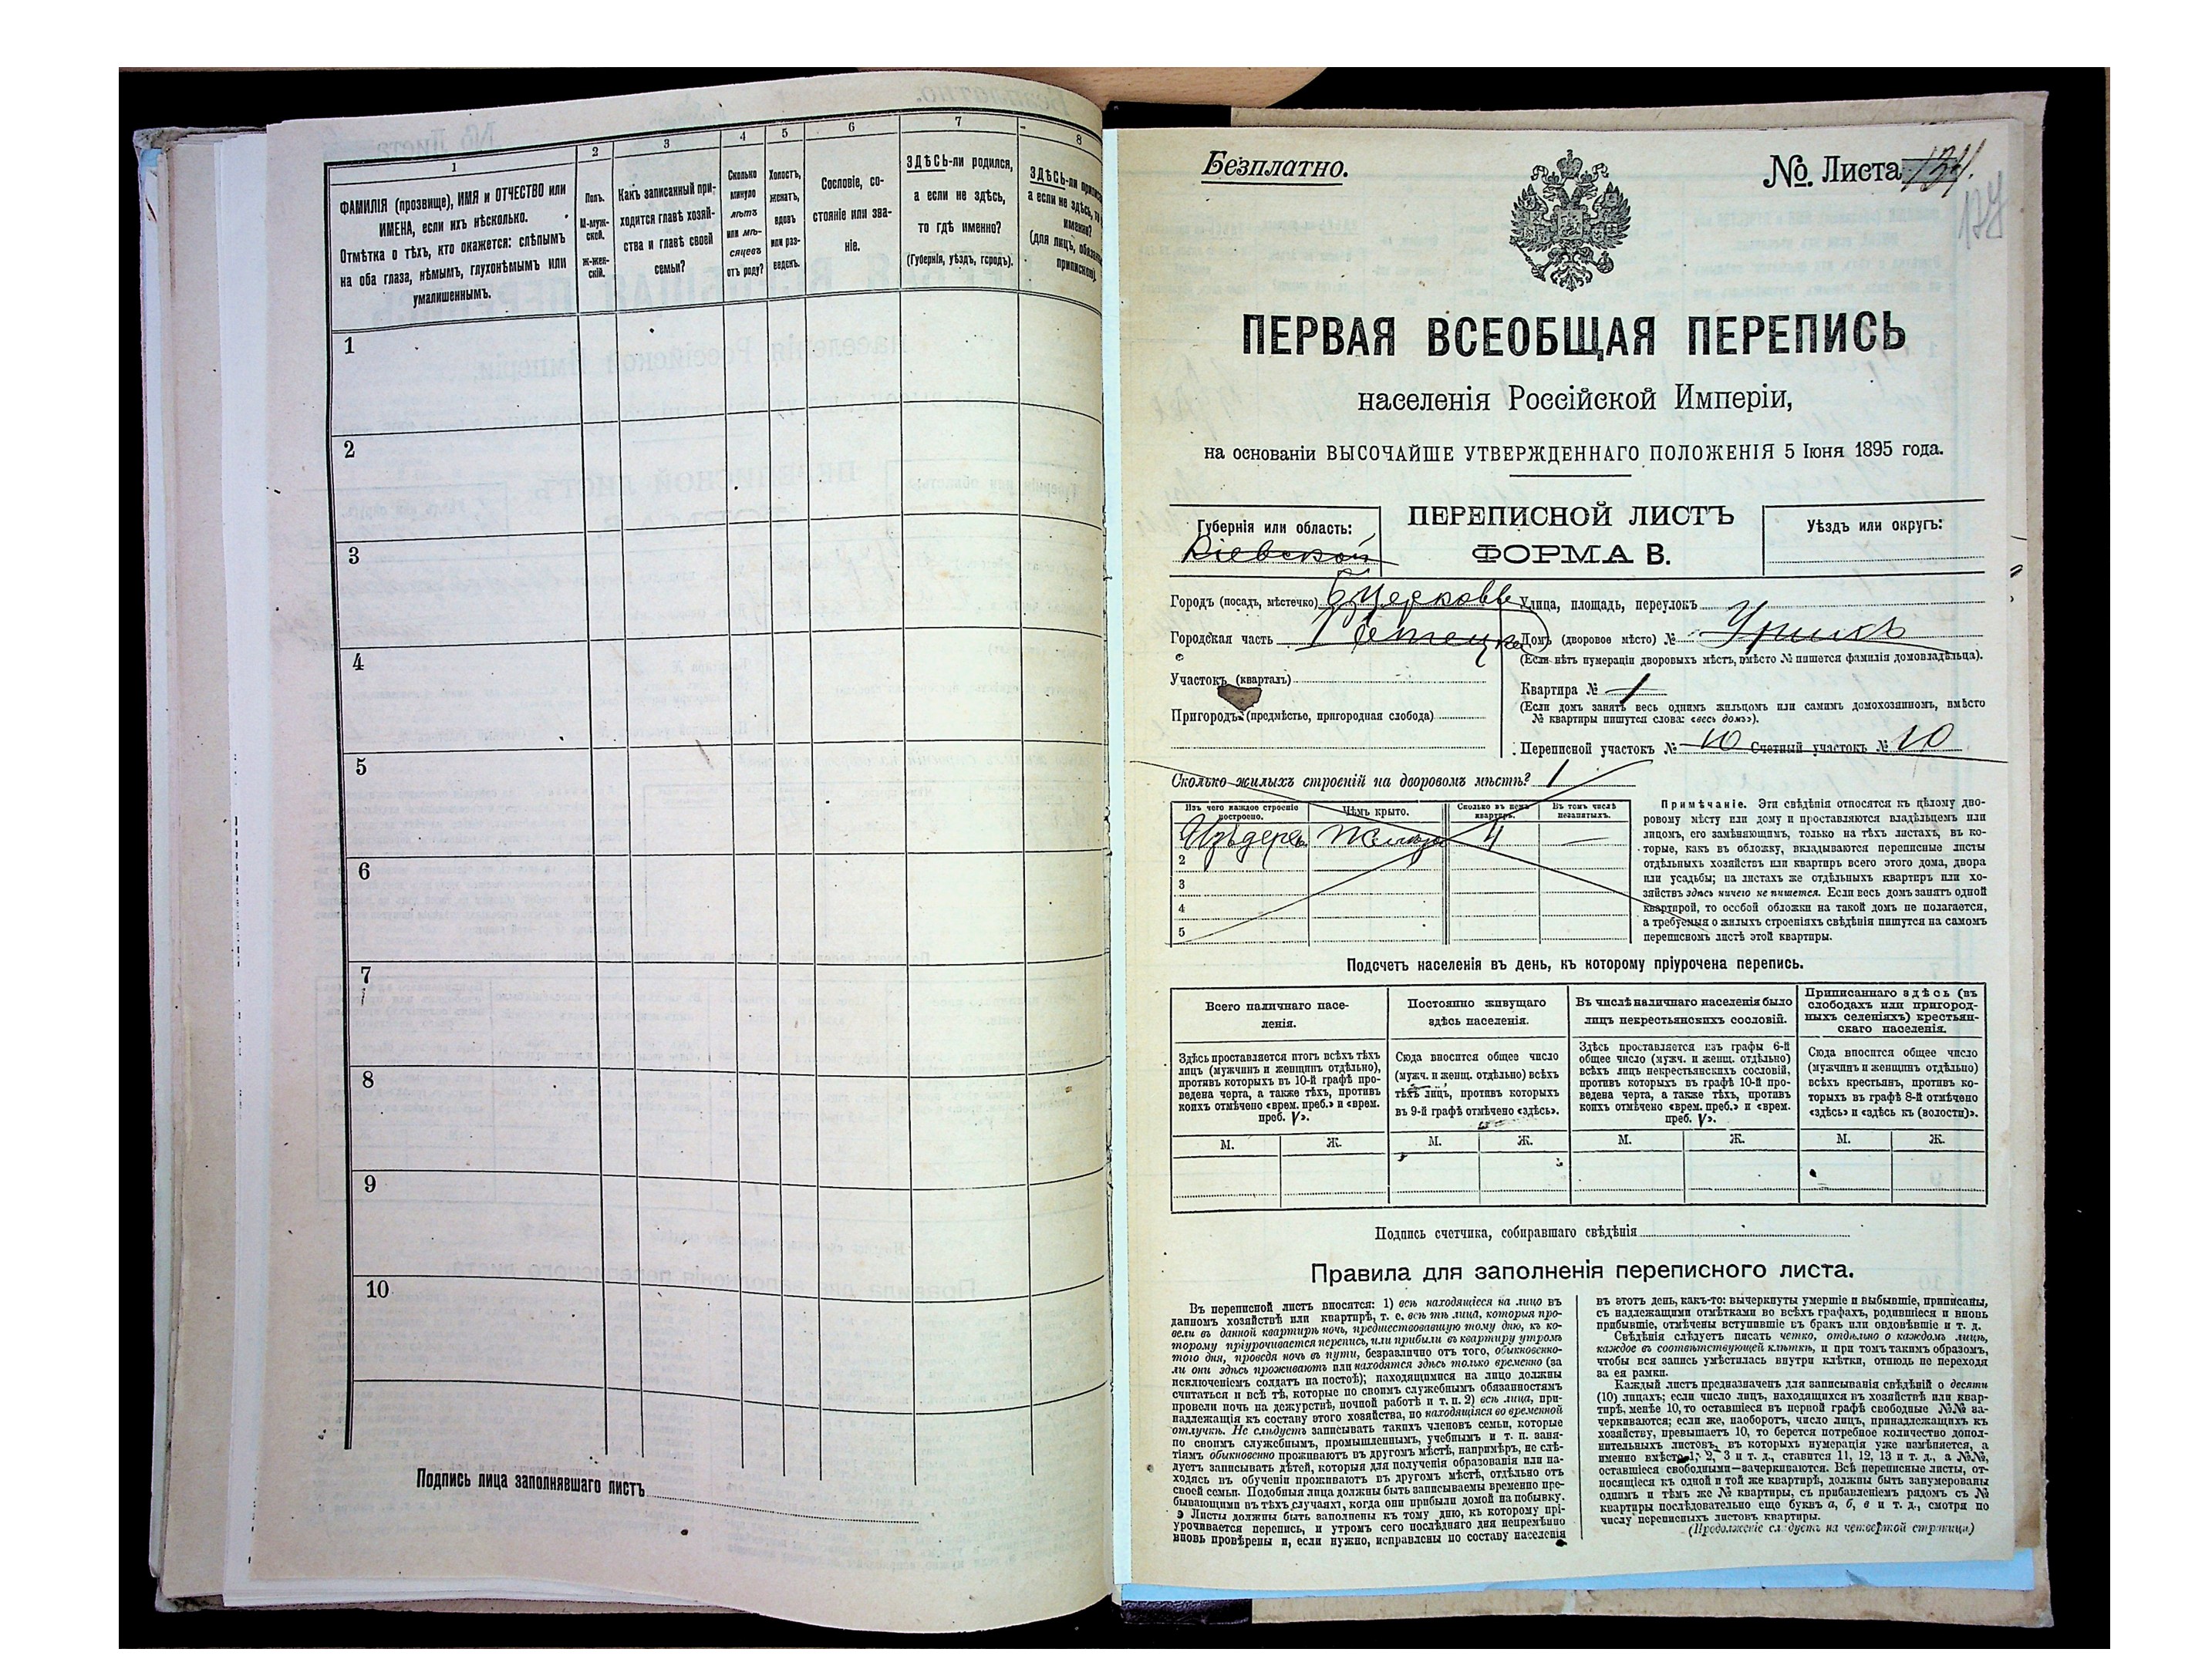 1
2
3
4
5
6
7
8
ФАМИЛІЯ (прозвище), ИМЯ и ОТЧЕСТВО или
ИМЕНА, если ихъ нѣсколько.
Отмѣтка о тѣхъ, кто окажется: слѣпымъ
на оба глаза, нѣмымъ, глухонѣмымъ или
умалишеннымъ.
Полъ.
М-муж-
ской.
Ж-жен-
скій.
Какъ записанный при-
ходится главѣ хозяй-
ства и главѣ своей
семьи?
Сколько
минуло
лѣтъ
или мѣ-
сяцевъ
отъ роду?
Холостъ,
женатъ,
вдовъ
или раз-
веденъ.
Сословіе, со-
стояніе или зва-
ніе.
ЗДѢСЬ-ли родился,
а если не здѣсь,
то гдѣ именно?
(Губернія, уѣздъ, городъ).
ЗДѢСЬ-ли
а если не здѣсь,
(для лицъ,
1
2
3
4
5
6
7
8
9
10
Подпись лица заполнявшаго листъ
Безплатно.
№ Листа
138
ПЕРВАЯ ВСЕОБЩАЯ ПЕРЕПИСЬ
населенія Россійской Имперіи,
на основаніи ВЫСОЧАЙШЕ УТВЕРЖДЕННАГО ПОЛОЖЕНІЯ 5 Іюня 1895 года.
Губернія или область:
Кіевской
ПЕРЕПИСНОЙ ЛИСТЪ
ФОРМА В.
Уѣздъ или округъ:
Городъ (посадъ, мѣстечко) Б Церковь
Городская часть
Участокъ (кварталъ)
Пригородъ (предмѣстье, пригородная слобода)
Улица, площадь, переулокъ
Домъ (дворовое мѣсто) №
(Если нѣтъ нумераціи дворовыхъ мѣстъ, вмѣсто № пишется фамилія домовладѣльца).
Квартира № 1
(Если домъ занятъ весь однимъ жильцомъ или самимъ домохозяиномъ, вмѣсто
№ квартиры пишутся слова: «весь домъ»).
Переписной участокъ № 10 Счетный участокъ № 10
Сколько жилыхъ строеній на дворовомъ мѣстѣ? 1
Изъ чего каждое строеніе
построено.
Чѣмъ крыто.
Сколько въ немъ
квартиръ.
Въ томъ числѣ
незанятыхъ.
Изъ дерев. 4 —
2
3
4
5
Примѣчаніе. Эти свѣдѣнія относятся къ цѣлому дво-
ровому мѣсту или дому и проставляются владѣльцемъ или
лицомъ, его замѣняющимъ, только на тѣхъ листахъ, въ ко-
торые, какъ въ обложку, вкладываются переписные листы
отдѣльныхъ хозяйствъ или квартиръ всего этого дома, двора
или усадьбы; на листахъ же отдѣльныхъ квартиръ или хо-
зяйствъ здѣсь ничего не пишется. Если весь домъ занятъ одной
квартирой, то особой обложки на такой домъ не полагается,
а требуемыя о жилыхъ строеніяхъ свѣдѣнія пишутся на самомъ
переписномъ листѣ этой квартиры.
Подсчетъ населенія въ день, къ которому пріурочена перепись.
Всего наличнаго насе-
ленія.
Постоянно живущаго
здѣсь населенія.
Въ числѣ наличнаго населенія было
лицъ некрестьянскихъ сословій.
Приписаннаго здѣсь (въ
слободахъ или пригород-
ныхъ селеніяхъ) крестьян-
скаго населенія.
Здѣсь проставляется итогъ всѣхъ тѣхъ
лицъ (мужчинъ и женщинъ отдѣльно),
противъ которыхъ въ 10-й графѣ про-
ведена черта, а также тѣхъ, противъ
коихъ отмѣчено «врем. преб.» и «врем.
преб. V».
Сюда вносится общее число
(мужч. и женщ. отдѣльно) всѣхъ
тѣхъ лицъ, противъ которыхъ
въ 9-й графѣ отмѣчено «здѣсь».
Здѣсь проставляется изъ графы 6-й
общее число (мужч. и женщ. отдѣльно)
всѣхъ лицъ некрестьянскихъ сословій,
противъ которыхъ въ графѣ 10-й про-
ведена черта, а также тѣхъ, противъ
коихъ отмѣчено «врем. преб.» и «врем.
преб. V».
Сюда вносится общее число
(мужчинъ и женщинъ отдѣльно)
всѣхъ крестьянъ, противъ ко-
торыхъ въ графѣ 8-й отмѣчено
«здѣсь» и «здѣсь къ (волости)».
М. Ж. М. Ж. М. Ж. М. Ж.
Подпись счетчика, собиравшаго свѣдѣнія
Правила для заполненія переписного листа.
Въ переписной листъ вносятся: 1) всѣ находящіеся на лицо въ
данномъ хозяйствѣ или квартирѣ, т. е. всѣ тѣ лица, которыя про-
вели въ данной квартирѣ ночь, предшествовавшую тому дню, къ ко-
торому пріурочивается перепись, или прибыли въ квартиру утромъ
того дня, проведя ночь въ пути, безразлично отъ того, обыкновенно-
ли они здѣсь проживаютъ или находятся здѣсь только временно (за
исключеніемъ солдатъ на постоѣ); находящимися на лицо должны
считаться и всѣ тѣ, которые по своимъ служебнымъ обязанностямъ
провели ночь на дежурствѣ, ночной работѣ и т. п. 2) всѣ лица, при-
надлежащія къ составу этого хозяйства, но находящіяся во временной
отлучкѣ. Не слѣдуетъ записывать такихъ членовъ семьи, которые
по своимъ служебнымъ, промышленнымъ, учебнымъ и т. п. заня-
тіямъ обыкновенно проживаютъ въ другомъ мѣстѣ, напримѣръ, не слѣ-
дуетъ записывать дѣтей, которыя для полученія образованія или на-
ходясь въ обученіи проживаютъ въ другомъ мѣстѣ, отдѣльно отъ
своей семьи. Подобныя лица должны быть записываемы временно пре-
бывающими въ тѣхъ случаяхъ, когда они прибыли домой на побывку.
Листы должны быть заполнены къ тому дню, къ которому прі-
урочивается перепись, и утромъ сего послѣдняго дня непремѣнно
вновь провѣрены и, если нужно, исправлены по составу населенія
въ этотъ день, какъ-то: вычеркнуты умершіе и выбывшіе, приписаны,
съ надлежащими отмѣтками во всѣхъ графахъ, родившіеся и вновь
прибывшіе, отмѣчены вступившіе въ бракъ или овдовѣвшіе и т. д.
Свѣдѣнія слѣдуетъ писать четко, отдѣльно о каждомъ лицѣ,
каждое въ соотвѣтствующей клѣткѣ, и при томъ такимъ образомъ,
чтобы вся запись умѣстилась внутри клѣтки, отнюдь не переходя
за ея рамки.
Каждый листъ предназначенъ для записыванія свѣдѣній о десяти
(10) лицахъ; если число лицъ, находящихся въ хозяйствѣ или квар-
тирѣ, менѣе 10, то оставшіеся въ первой графѣ свободные №№ за-
черкиваются; если же, наоборотъ, число лицъ, принадлежащихъ къ
хозяйству, превышаетъ 10, то берется потребное количество допол-
нительныхъ листовъ, въ которыхъ нумерація уже измѣняется, а
именно вмѣсто 1, 2, 3 и т. д., ставится 11, 12, 13 и т. д., а №№,
оставшіеся свободными—зачеркиваются. Всѣ переписные листы, от-
носящіеся къ одной и той же квартирѣ, должны быть занумерованы
однимъ и тѣмъ же № квартиры, съ прибавленіемъ рядомъ съ №
квартиры послѣдовательно еще буквъ а, б, в и т. д., смотря по
числу переписныхъ листовъ квартиры.
(Продолженіе слѣдуетъ на четвертой страницѣ)